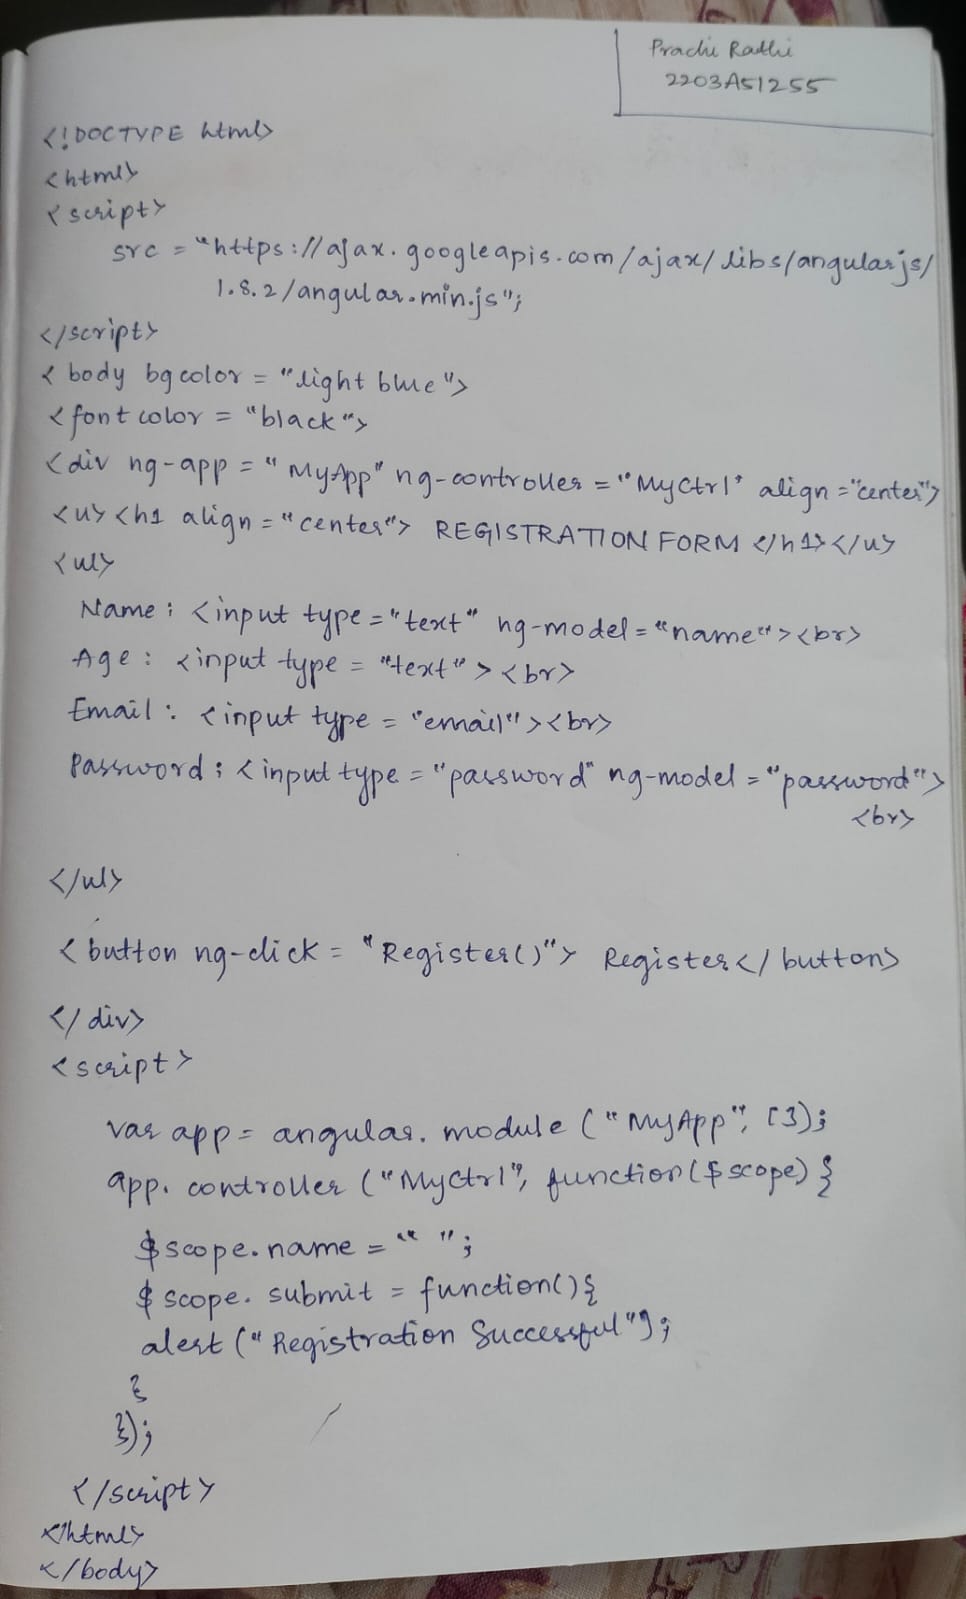 Prachi Rathi
2203A51255
<!DOCTYPE html>
<html>
<script>
src = "https://ajax.googleapis.com/ajax/libs/angularjs/
1.8.2/angular.min.js";
</script>
<body bgcolor = "light blue">
<font color = "black">
<div ng-app = "MyApp" ng-controller = "MyCtrl" align = "center">
<u><h1 align = "center"> REGISTRATION FORM </h1></u>
<ul>
Name : <input type = "text" ng-model = "name"><br>
Age : <input type = "text"> <br>
Email : <input type = "email"><br>
Password : <input type = "password" ng-model = "password">
<br>
</ul>
<button ng-click = "Register()"> Register</button>
</div>
<script>
var app = angular.module ("MyApp", []);
app.controller ("MyCtrl", function($scope) {
$scope.name = " ";
$scope.submit = function(){
alert ("Registration Successful");
}
});
</script>
</html>
</body>